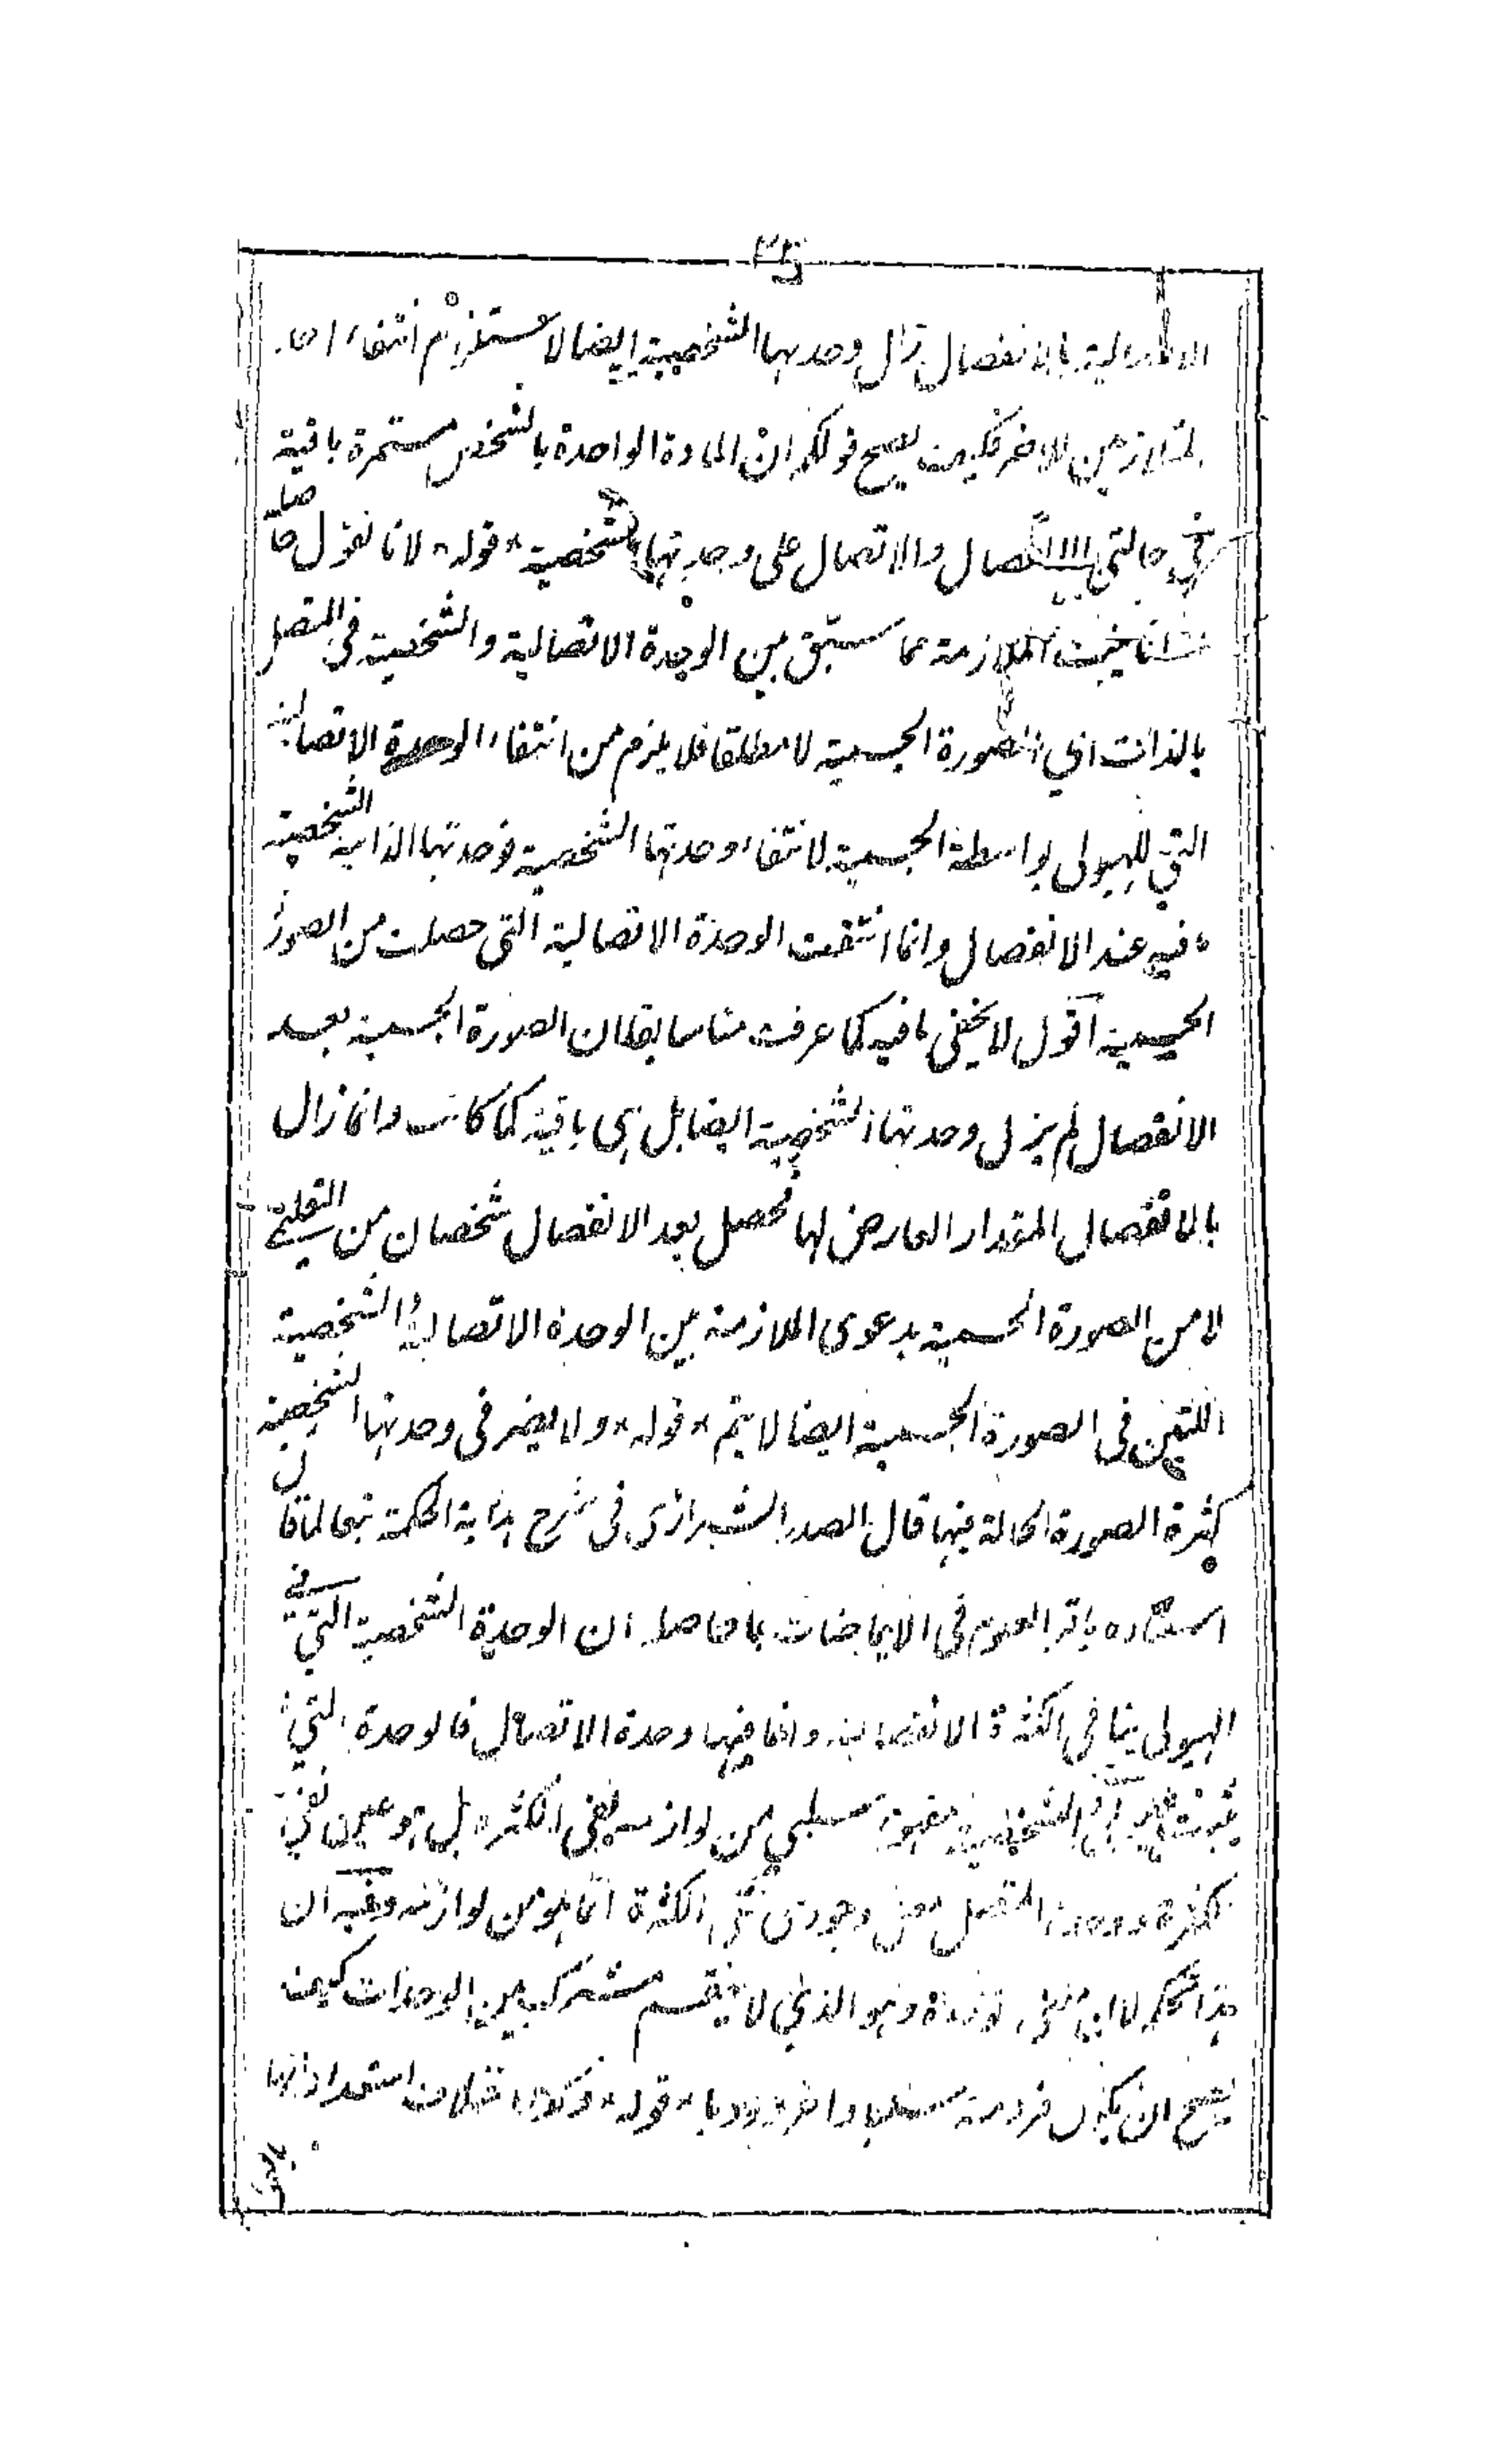 ٣٥
الاتصالية بالانفصال زال وحدتها الشخصية ايضا لاستلزام انتفاء احد
المتلازمين للاخر فكيف يصح قولكم ان المادة الواحدة بالشخص مستمرة باقية
في حالتي الانفصال والاتصال على وحدتها الشخصية * قوله * لانا نقول حاصله
الملازمة مما سبق بين الوحدة الاتصالية والشخصية في المتصل
بالذات اي الصورة الجسمية لا مطلقا فلا يلزم من انتفاء الوحدة الاتصالية
التي للهيولى بواسطة الجسمية لانتفاء وحدتها الشخصية فوحدتها الذاتية الشخصية
باقية عند الانفصال وانما انتفت الوحدة الاتصالية التي حصلت من الصورة
الجسمية اقول لا يخفى ما فيه كما عرفت منا سابقا ان الصورة الجسمية بعد
الانفصال لم يزل وحدتها الشخصية ايضا بل هي باقية كما كانت وانما زال
بالانفصال المقدار العارض لها فحصل بعد الانفصال شخصان من التعليمي
لا من الصورة الجسمية بدعوى الملازمة بين الوحدة الاتصالية والشخصية
اللتين في الصورة الجسمية ايضا لا يتم * قوله * ولا يضر في وحدتها الشخصية
كثرة الصورة الحالة فيها قال الصدر الشيرازي في شرح هداية الحكمة تبعا لما قال
استاده باقر العلوم في الايماضات بما حاصله ان الوحدة الشخصية التي في
الهيولى ينافي الكثرة الانفصالية وانما فيها وحدة الاتصال فالوحدة التي
الشخصية مفهوم سلبي من لوازمه نفي الكثرة بل هو عين نفي
الكثرة ووحدة المتصل معنى وجودي نفي الكثرة انما هو من لوازمه وفيه ان
هذا تحكم لان وهو الذي لا ينقسم مشترك بين الوحدات كيف
يصح ان يكون فرد منه سلبيا واخر وجوديا * قوله * استعداداتها